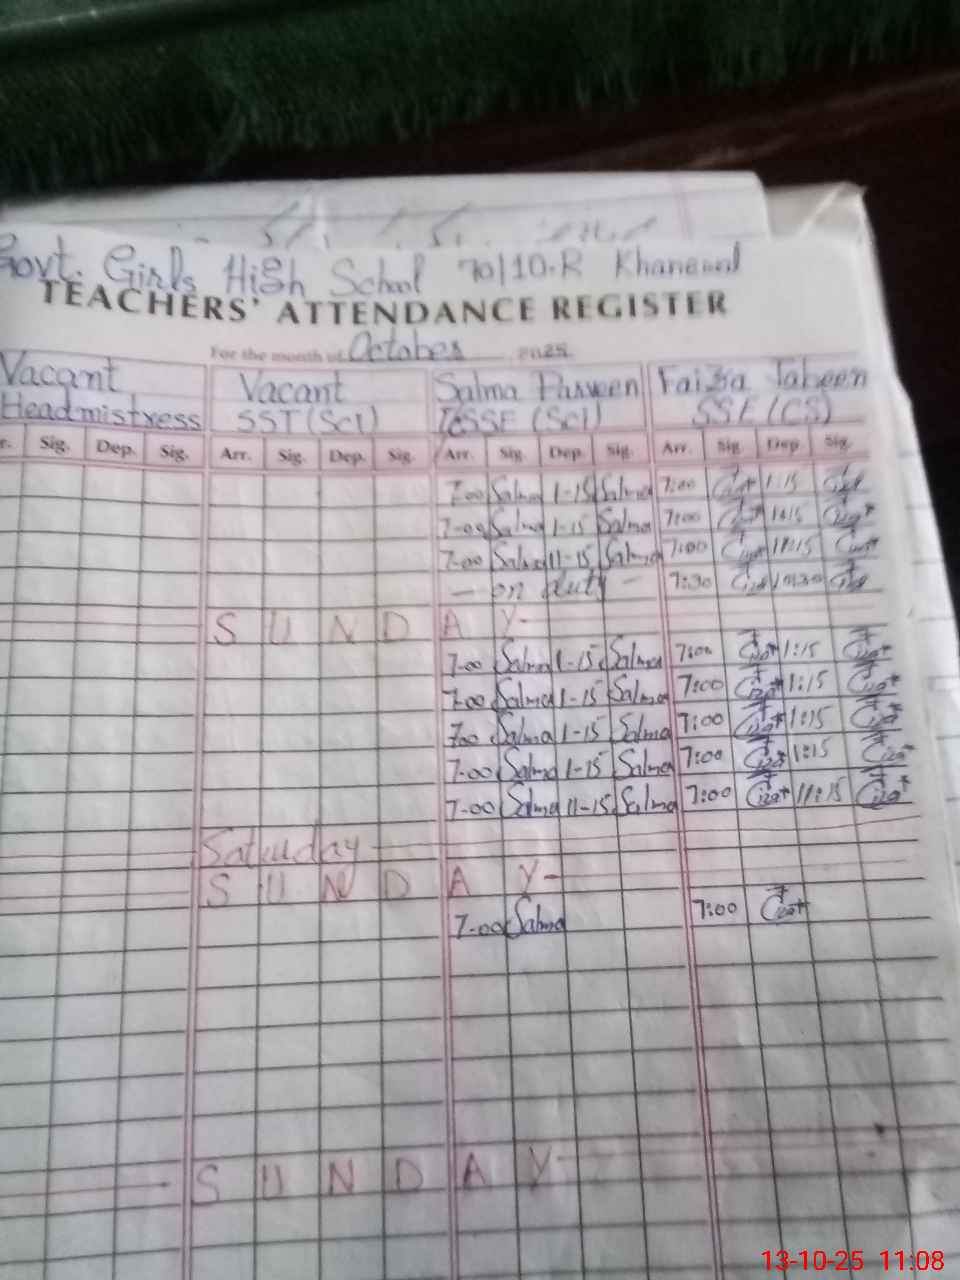 Govt. Girls High School 70/10.R Khanewal
TEACHERS' ATTENDANCE REGISTER
For the month of October 2025
Vacant Vacant Salma Parveen Faiza Jabeen
Headmistress SST (Sci) SSE (Sci) SSE (CS)
Sig. Dep. Sig. Arr. Sig. Dep. Sig. Arr. Sig. Dep. Sig. Arr. Sig. Dep. Sig.
7-00 Salma 1-15 Salma 7:00 1:15
7-00 Salma 1-15 Salma 7:00 1:15
7-00 Salma 11-15 Salma 7:00 11:15
- on duty - 7:30 10:30
S U N D A Y-
7-00 Salma 1-15 Salma 7:00 1:15
7-00 Salma 1-15 Salma 7:00 1:15
7-00 Salma 1-15 Salma 7:00 1:15
7-00 Salma 1-15 Salma 7:00 1:15
7-00 Salma 11-15 Salma 7:00 11:15
Saturday
S U N D A Y-
7-00 Salma 7:00
S U N D A Y-
13-10-25 11:08